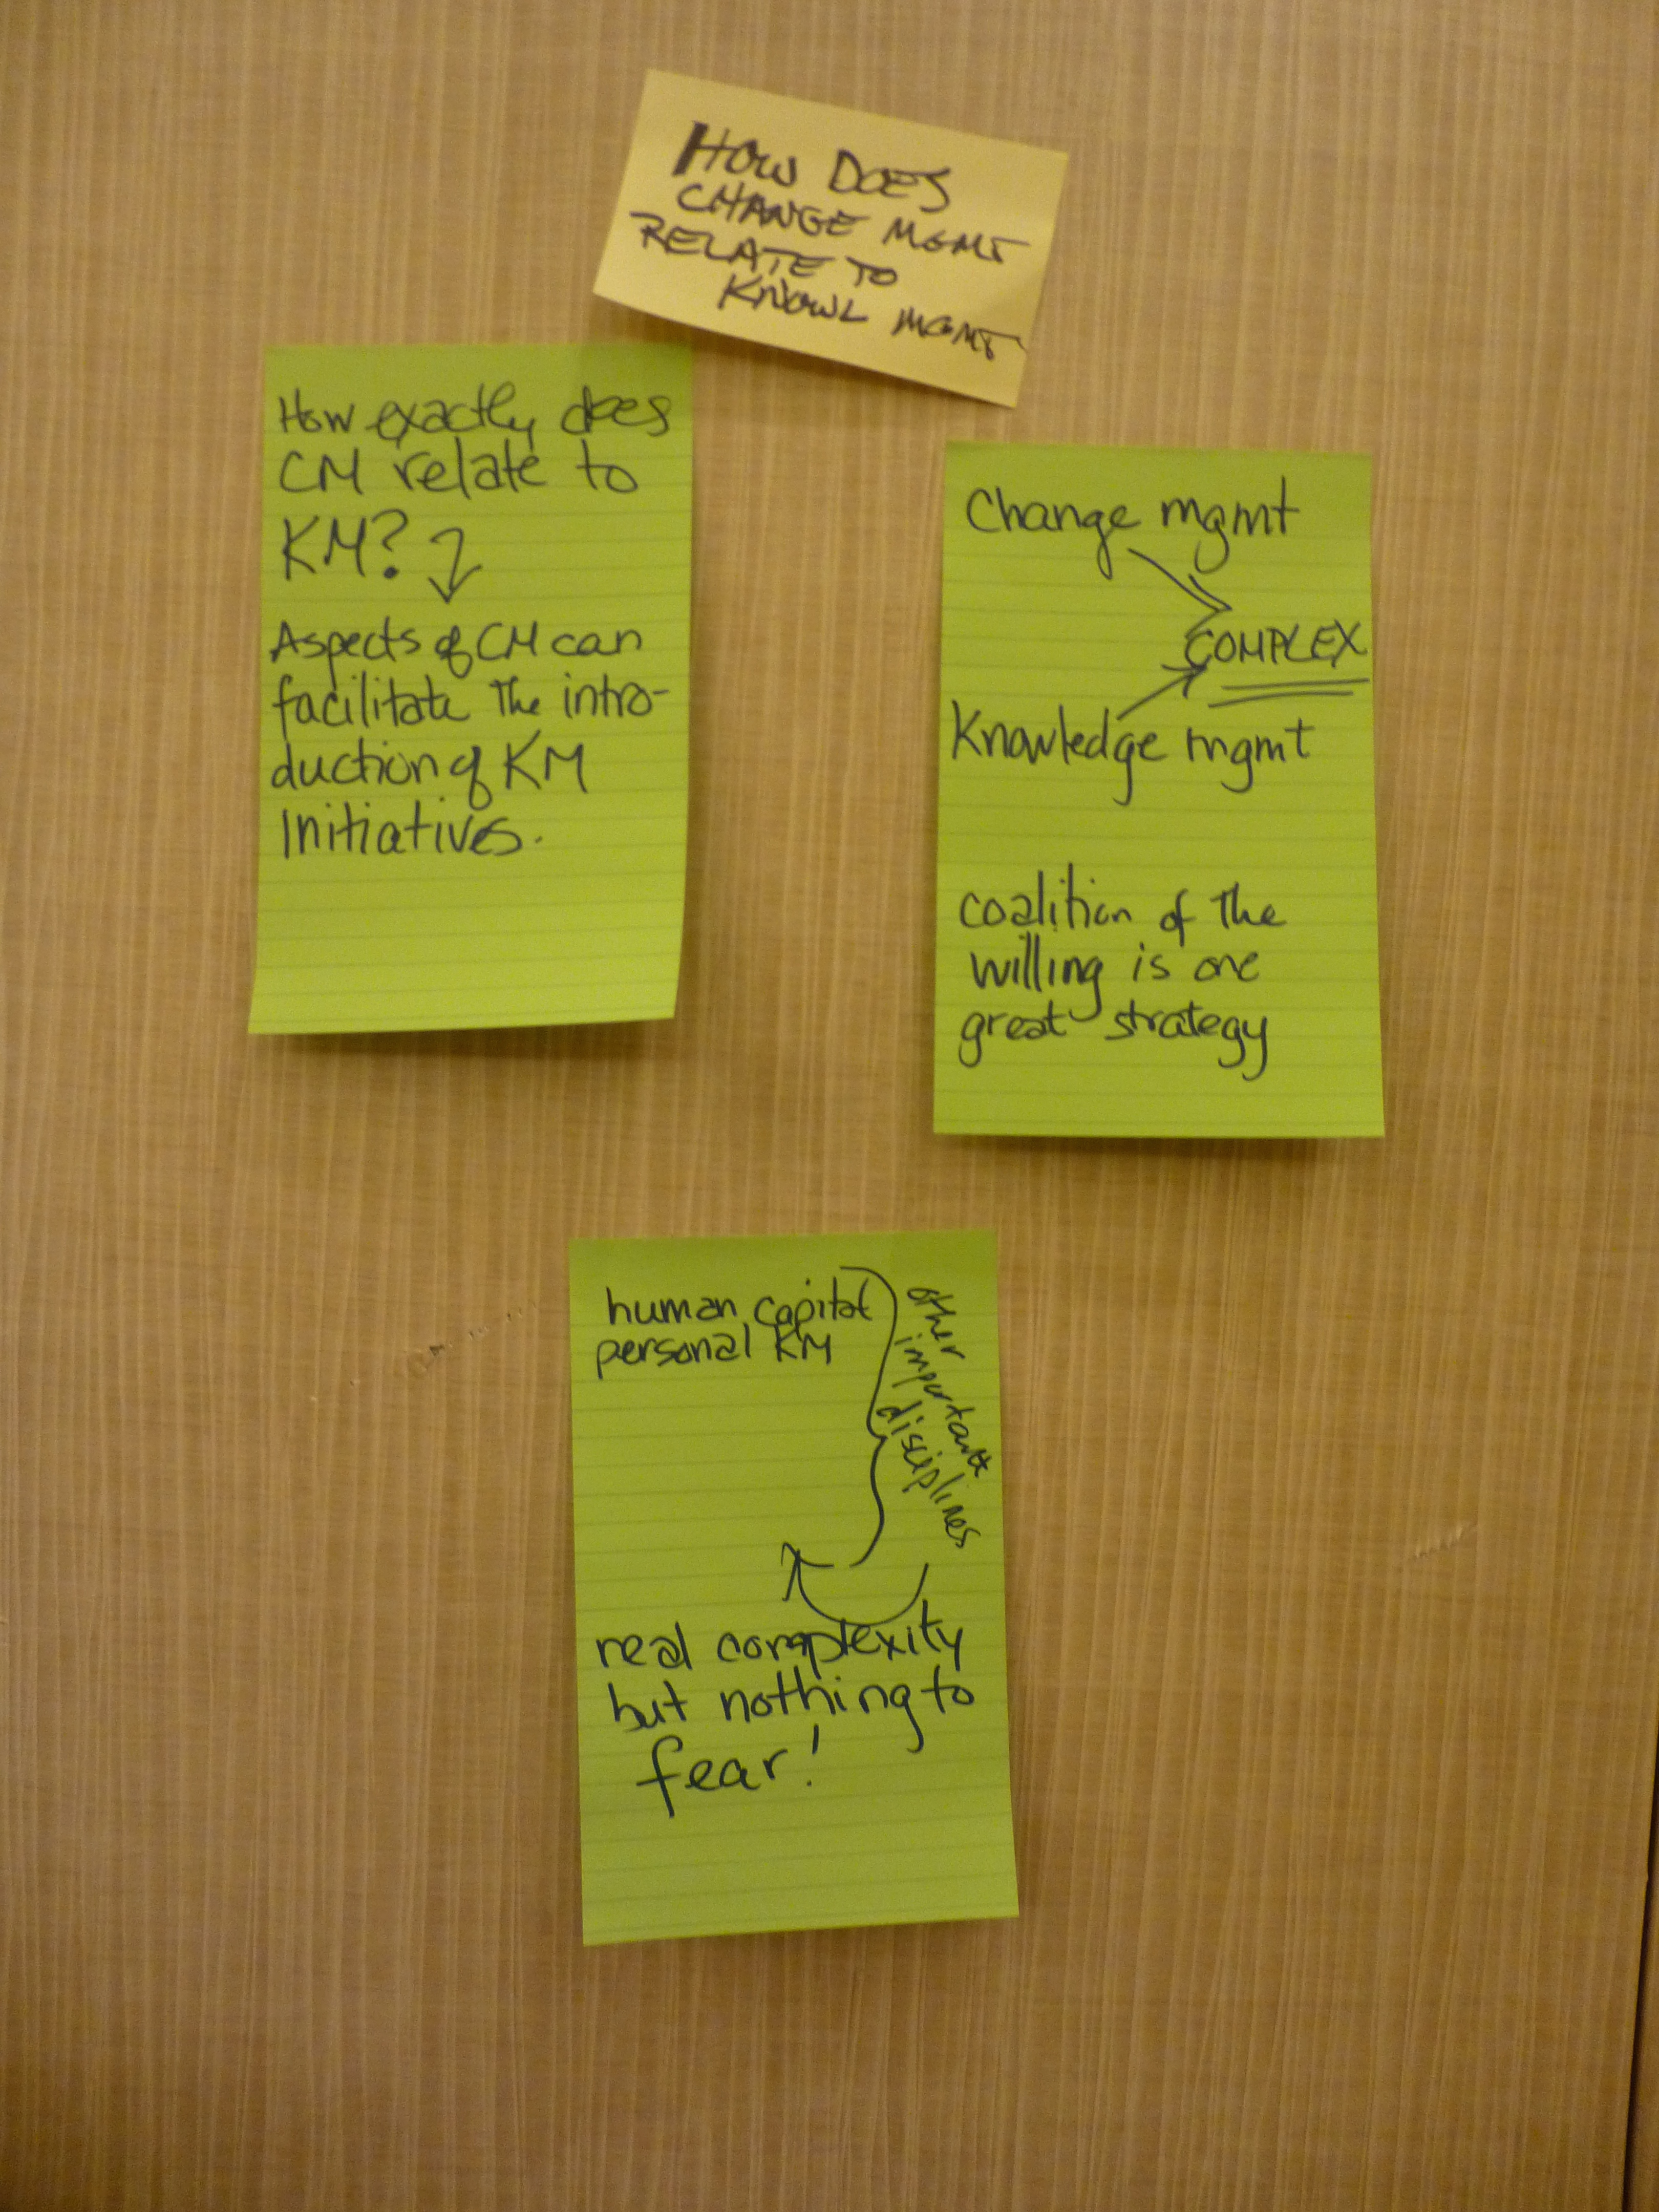 HOW DOES
CHANGE MGMT
RELATE TO
KNOWL MGMT
How exactly does
CM relate to
KM?
Aspects of CM can
facilitate the intro-
duction of KM
Initiatives.
Change mgmt
COMPLEX
Knowledge mgmt
coalition of the
willing is one
great strategy
human capital
personal KM
other
important
disciplines
real complexity
but nothing to
fear!